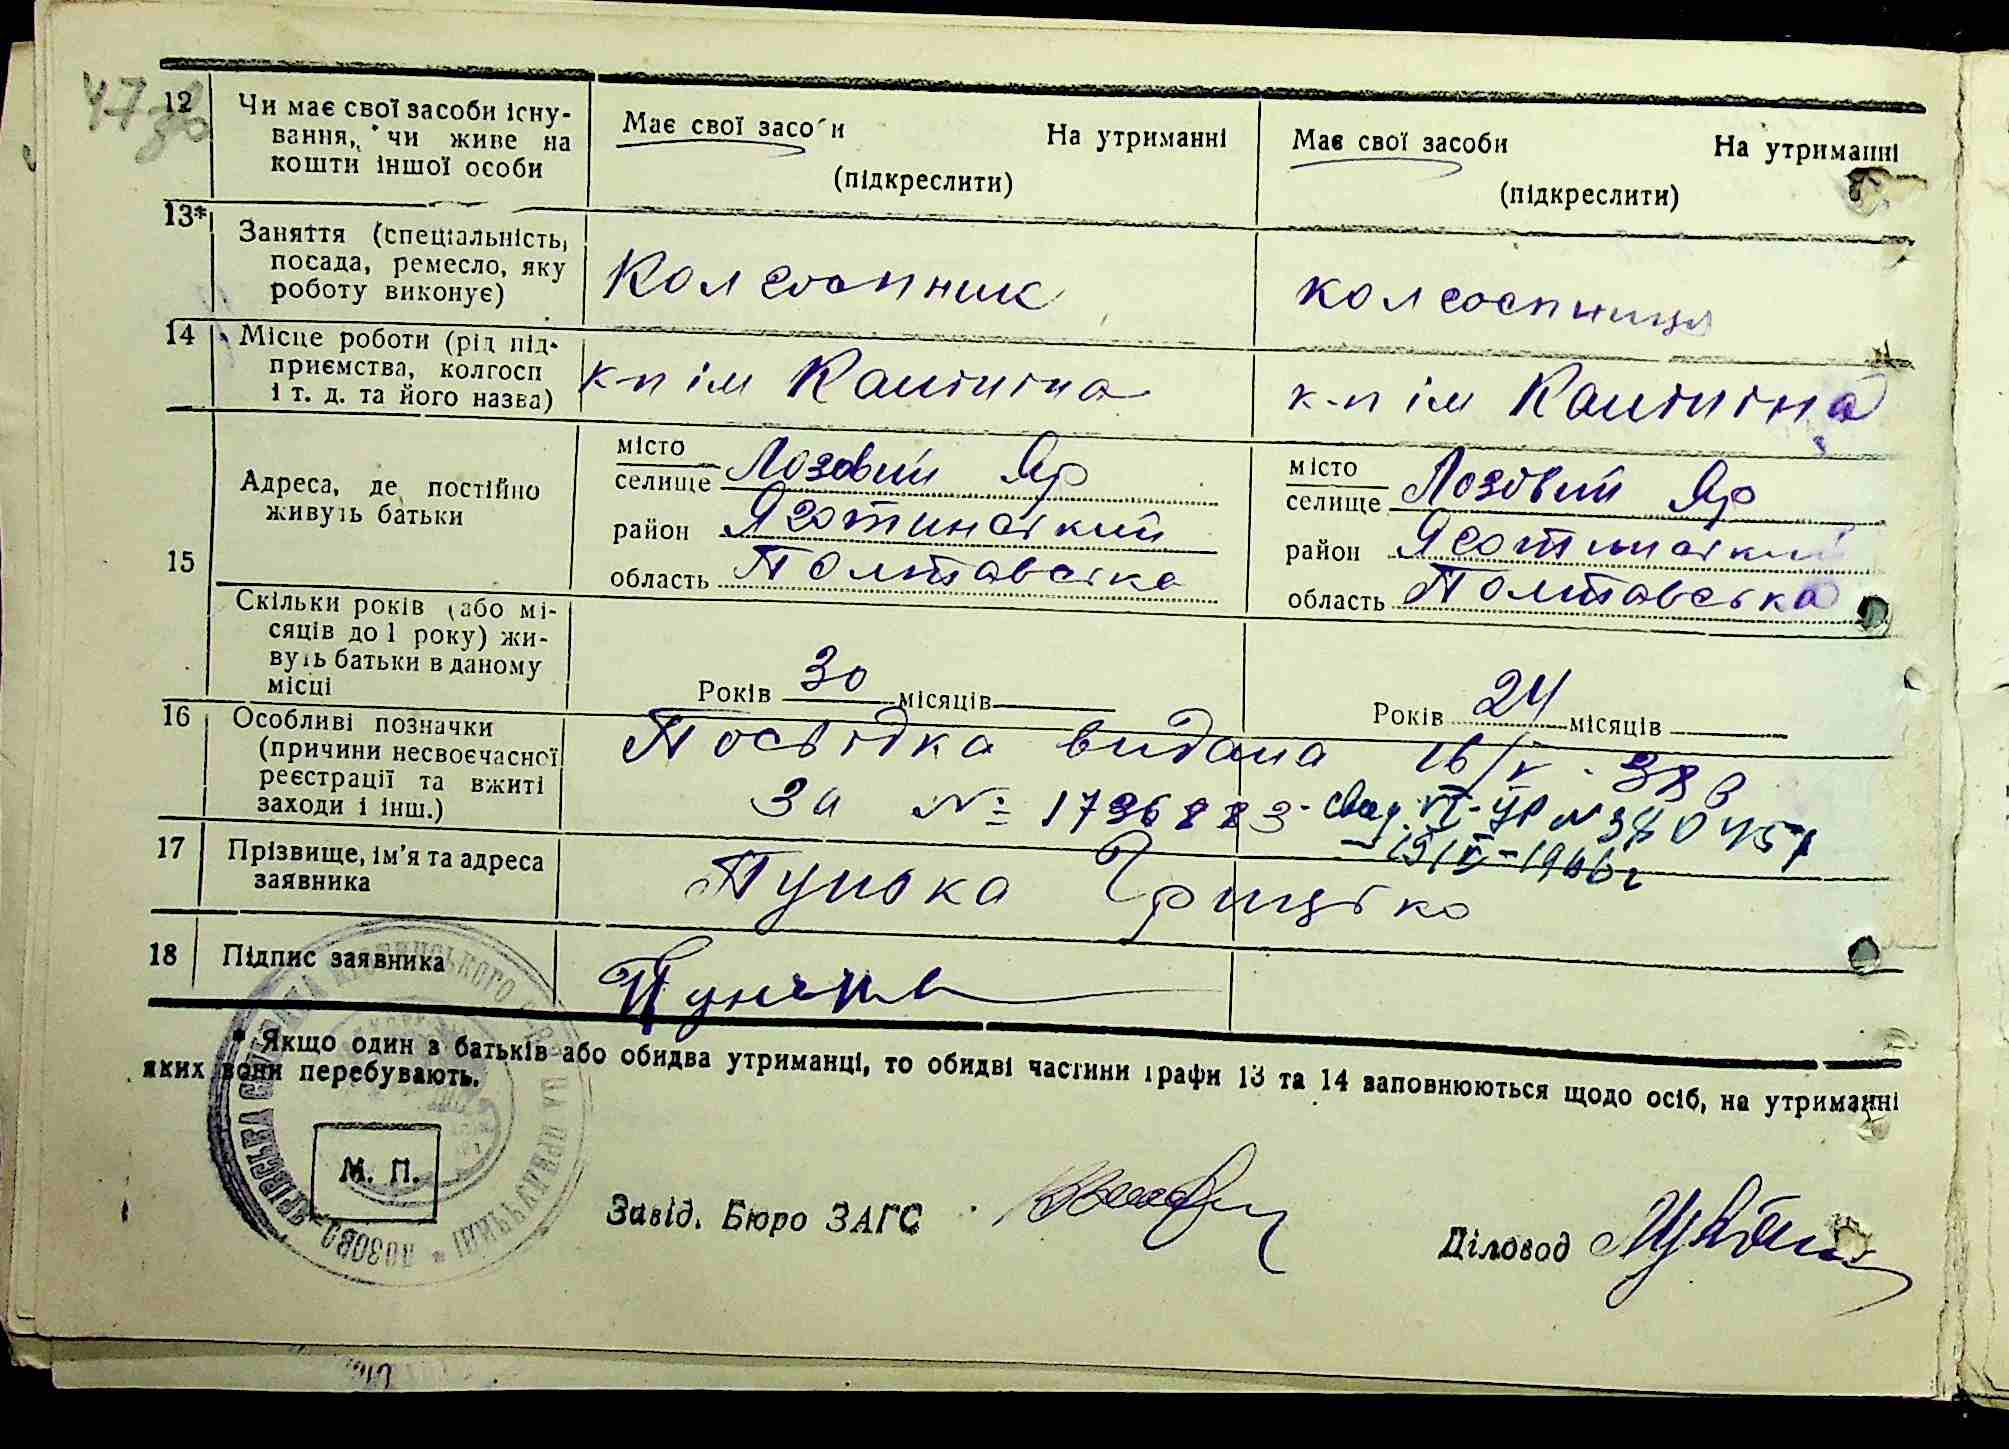 47 зв
12 Чи має свої засоби існу-
вання, чи живе на
кошти іншої особи
Має свої засо и На утриманні
(підкреслити)
Має свої засоби На утриманні
(підкреслити)
13* Заняття (спеціальність,
посада, ремесло, яку
роботу виконує)
Колгоспник
колгоспниця
14 Місце роботи (рід під-
приємства, колгосп
і т. д. та його назва)
к-п ім Калініна
к-п ім Калініна
15 Адреса, де постійно
живуть батьки
місто
селище Лозовий Яр
район Яготинський
область Полтавська
місто
селище Лозовий Яр
район Яготинський
область Полтавська
Скільки років (або мі-
сяців до 1 року) жи-
вуть батьки в даному
місці
Років 30 місяців
Років 24 місяців
16 Особливі позначки
(причини несвоєчасної
реєстрації та вжиті
заходи і інш.)
Посвідка видана 16/V - 38 р
за № 1736883 - свид. VI-УР N 380457
15/V - 1966 г
17 Прізвище, ім'я та адреса
заявника
Пунька Грицько
18 Підпис заявника
* Якщо один з батьків або обидва утриманці, то обидві частини графи 13 та 14 заповнюються щодо осіб, на утриманні
яких вони перебувають.
М. П.
Завід. Бюро ЗАГС
Діловод